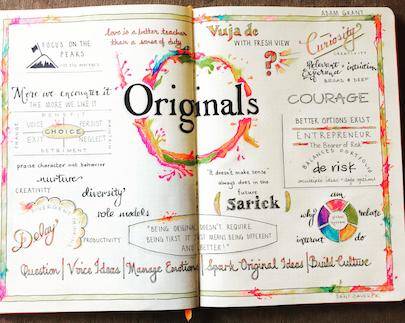 ADAM GRANT
FOCUS ON THE
PEAKS
love is a better teacher
than a sense of duty
Vuja de
WITH FRESH VIEW
?
Curiosity
CREATIVITY
Relevant + intuition
Experience
BROAD & DEEP
More we encounter it
THE MORE WE LIKE IT
Originals
COURAGE
BENEFIT
CHANGE
VOICE
PERSIST
CHOICE
EXIT
NEGLECT
DETRIMENT
BETTER OPTIONS EXIST
ENTREPRENEUR
The Bearer of Risk
BALANCED PORTFOLIO
de risk
praise character not behavior
nurture
CREATIVITY
diversity
role models
"It doesn't make sense"
always does in the
future
Sarick
aim
why?
relate
internet
do
DIVERGENT
Delay
PRODUCTIVITY
"BEING ORIGINAL DOESN'T REQUIRE
BEING FIRST. IT JUST MEANS BEING DIFFERENT
AND BETTER!"
Question | Voice Ideas | Manage Emotions | Spark Original Ideas | Build Culture